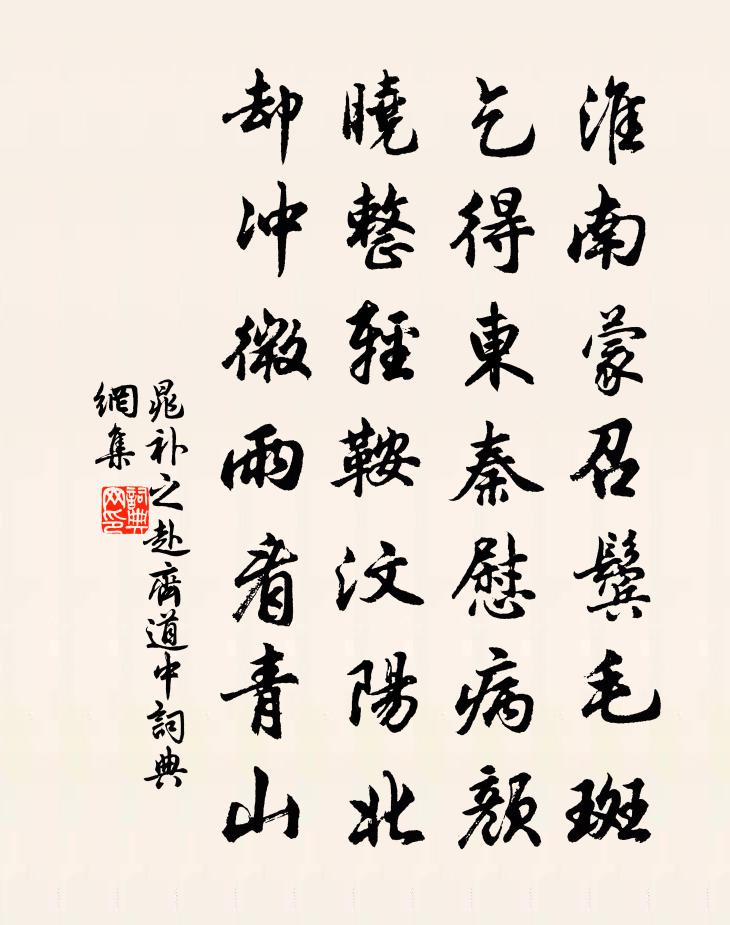 淮南蒙召鬢毛斑
乞得東秦慰病顏
曉整輕鞍汶陽北
却沖微雨看青山
晁补之赴齊道中詞典
網集
詞典
网印